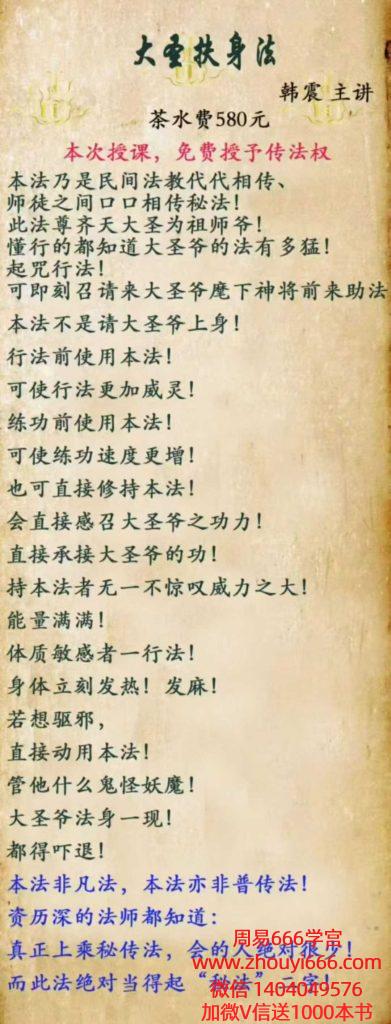 大圣扶身法
韩震 主讲
茶水费580元
本次授课，免费授予传法权
本法乃是民间法教代代相传、
师徒之间口口相传秘法！
此法尊齐天大圣为祖师爷！
懂行的都知道大圣爷的法有多猛！
起咒行法！
可即刻召请来大圣爷麾下神将前来助法
本法不是请大圣爷上身！
行法前使用本法！
可使行法更加威灵！
练功前使用本法！
可使练功速度更增！
也可直接修持本法！
会直接感召大圣爷之功力！
直接承接大圣爷的功！
持本法者无一不惊叹威力之大！
能量满满！
体质敏感者一行法！
身体立刻发热！发麻！
若想驱邪，
直接动用本法！
管他什么鬼怪妖魔！
大圣爷法身一现！
都得吓退！
本法非凡法，本法亦非普传法！
资历深的法师都知道：
真正上乘秘传法，会的人绝对很少！
而此法绝对当得起“秘法”二字！
周易666学宫
www.zhouyi666.com
微信 1404049576
加微V信送1000本书